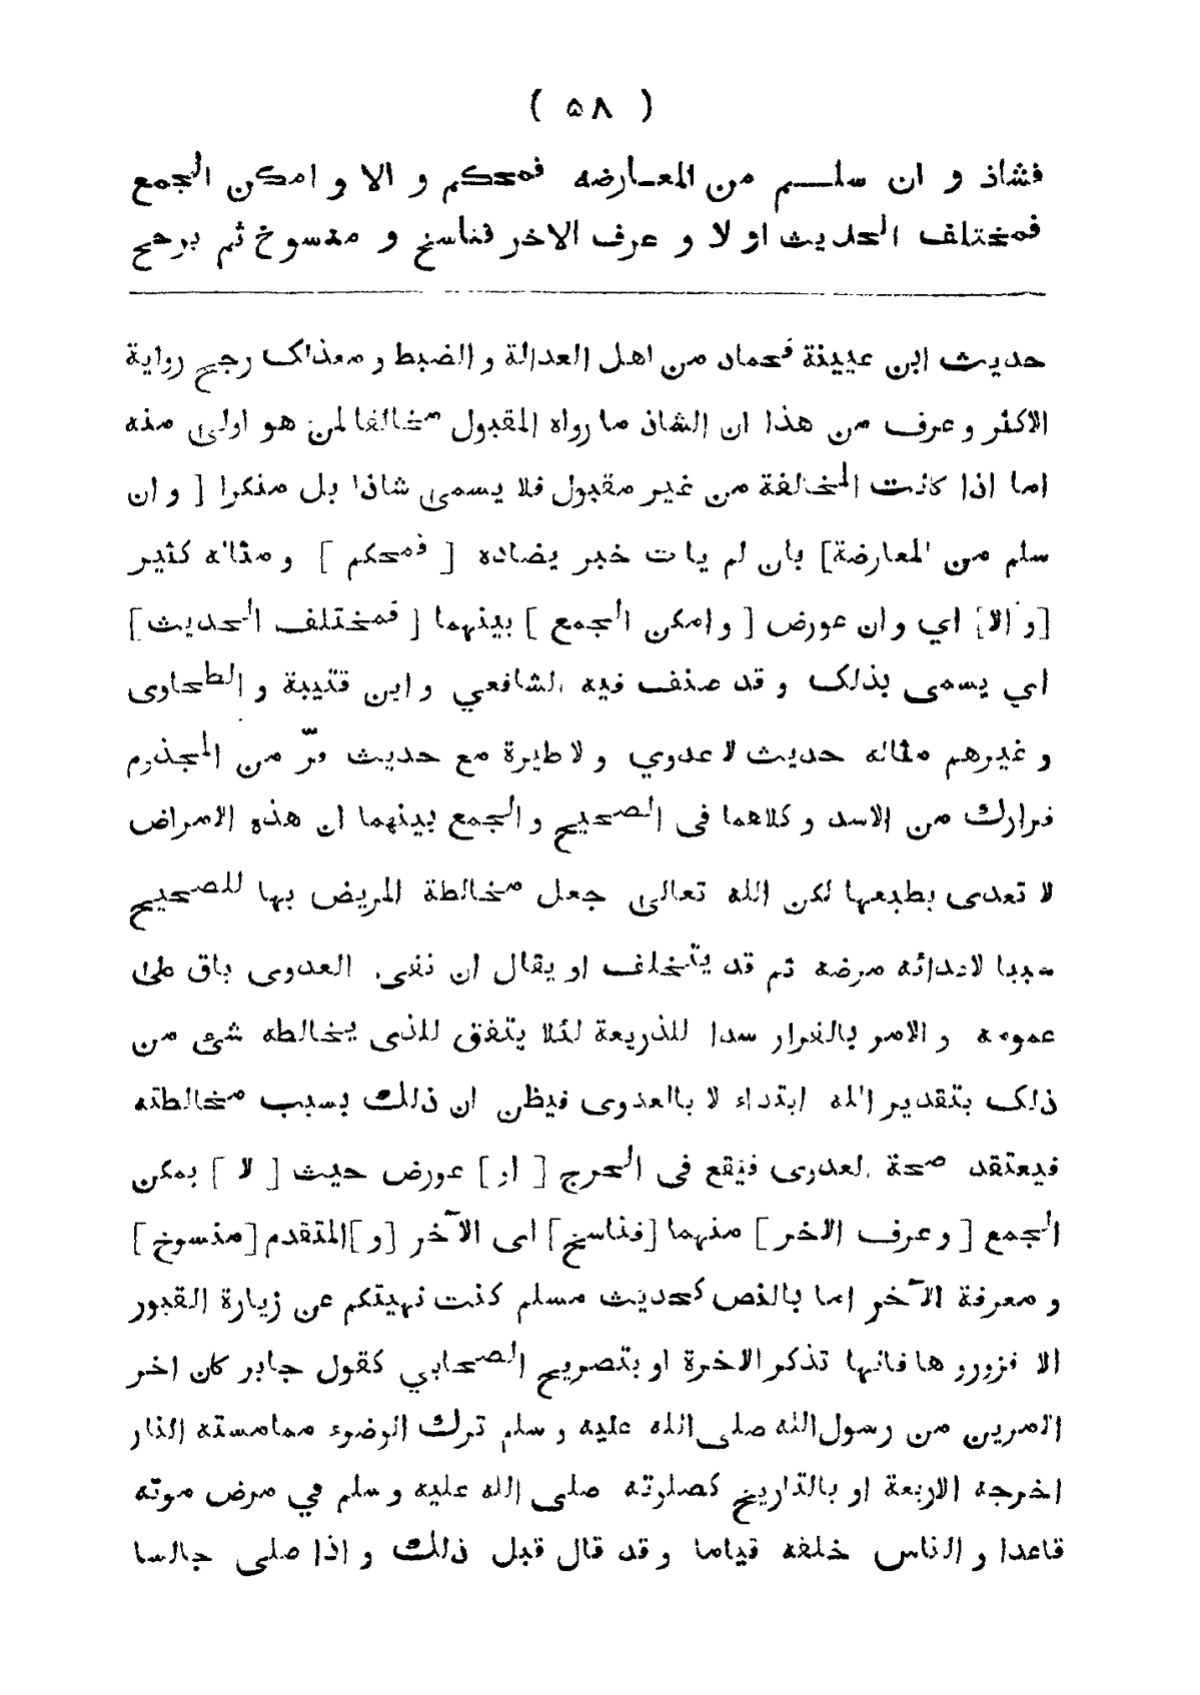 ( ۵۸ )
فشاذ و ان سلـــم من المعـارضه فمحكم و الا و امكن الجمع
فمختلف الحديث او لا و عرف الاخر فناسخ و منسوخ ثم يرجح
حديث ابن عيينة فحماد من اهل العدالة و الضبط و معذاك رجح رواية
الاكثر و عرف من هذا ان الشاذ ما رواه المقبول مخالفا لمن هو اولى منه
اما اذا كانت المخالفة من غير مقبول فلا يسمى شاذا بل منكرا [ و ان
سلم من المعارضة] بان لم يا ت خبر يضاده [ فمحكم ] و مثاله كثير
[و الا] اي و ان عورض [ و امكن الجمع ] بينهما [ فمختلف الحديث]
اي يسمى بذلك و قد صنف فيه الشافعي و ابن قتيبة و الطحاوى
و غيرهم مثاله حديث لا عدوي و لا طيرة مع حديث فرّ من المجذوم
فرارك من الاسد و كلاهما فى الصحيح و الجمع بينهما ان هذه الامراض
لا تعدى بطبعها لكن الله تعالى جعل مخالطة المريض بها للصحيح
سببا لاعدائه مرضه ثم قد يتخلف او يقال ان نفى العدوى باق على
عمومه و الامر بالفرار سدا للذريعة لئلا يتفق للذى يخالطه شئ من
ذلك بتقدير الله ابتداء لا بالعدوى فيظن ان ذلك بسبب مخالطته
فيعتقد صحة العدوى فيقع فى الحرج [ او] عورض حيث [ لا ] يمكن
الجمع [ و عرف الاخر ] منهما [فناسخ] اى الآخر [و]المتقدم [منسوخ]
و معرفة الآخر اما بالنص كحديث مسلم كنت نهيتكم عن زيارة القبور
الا فزورو ها فانها تذكر الاخرة او بتصريح الصحابي كقول جابر كان اخر
الامرين من رسول الله صلى الله عليه و سلم ترك الوضوء ممامسته النار
اخرجه الاربعة او بالتاريخ كصلوته صلى الله عليه و سلم في مرض موته
قاعدا و الناس خلفه قياما و قد قال قبل ذلك و اذا صلى جالسا